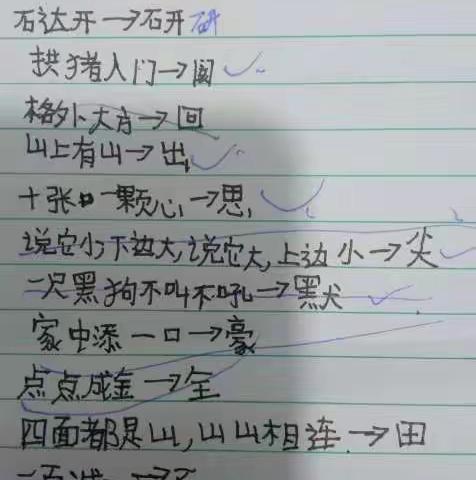 石达开→石开研
拱猪入门→阂
格外大方→回
山上有山→出
十张口一颗心→思
说它小下边大,说它大,上边小→尖
一只黑狗不叫不吼→黑犬
家中添一口→豪
点点成金→全
四面都是山,山山相连→田